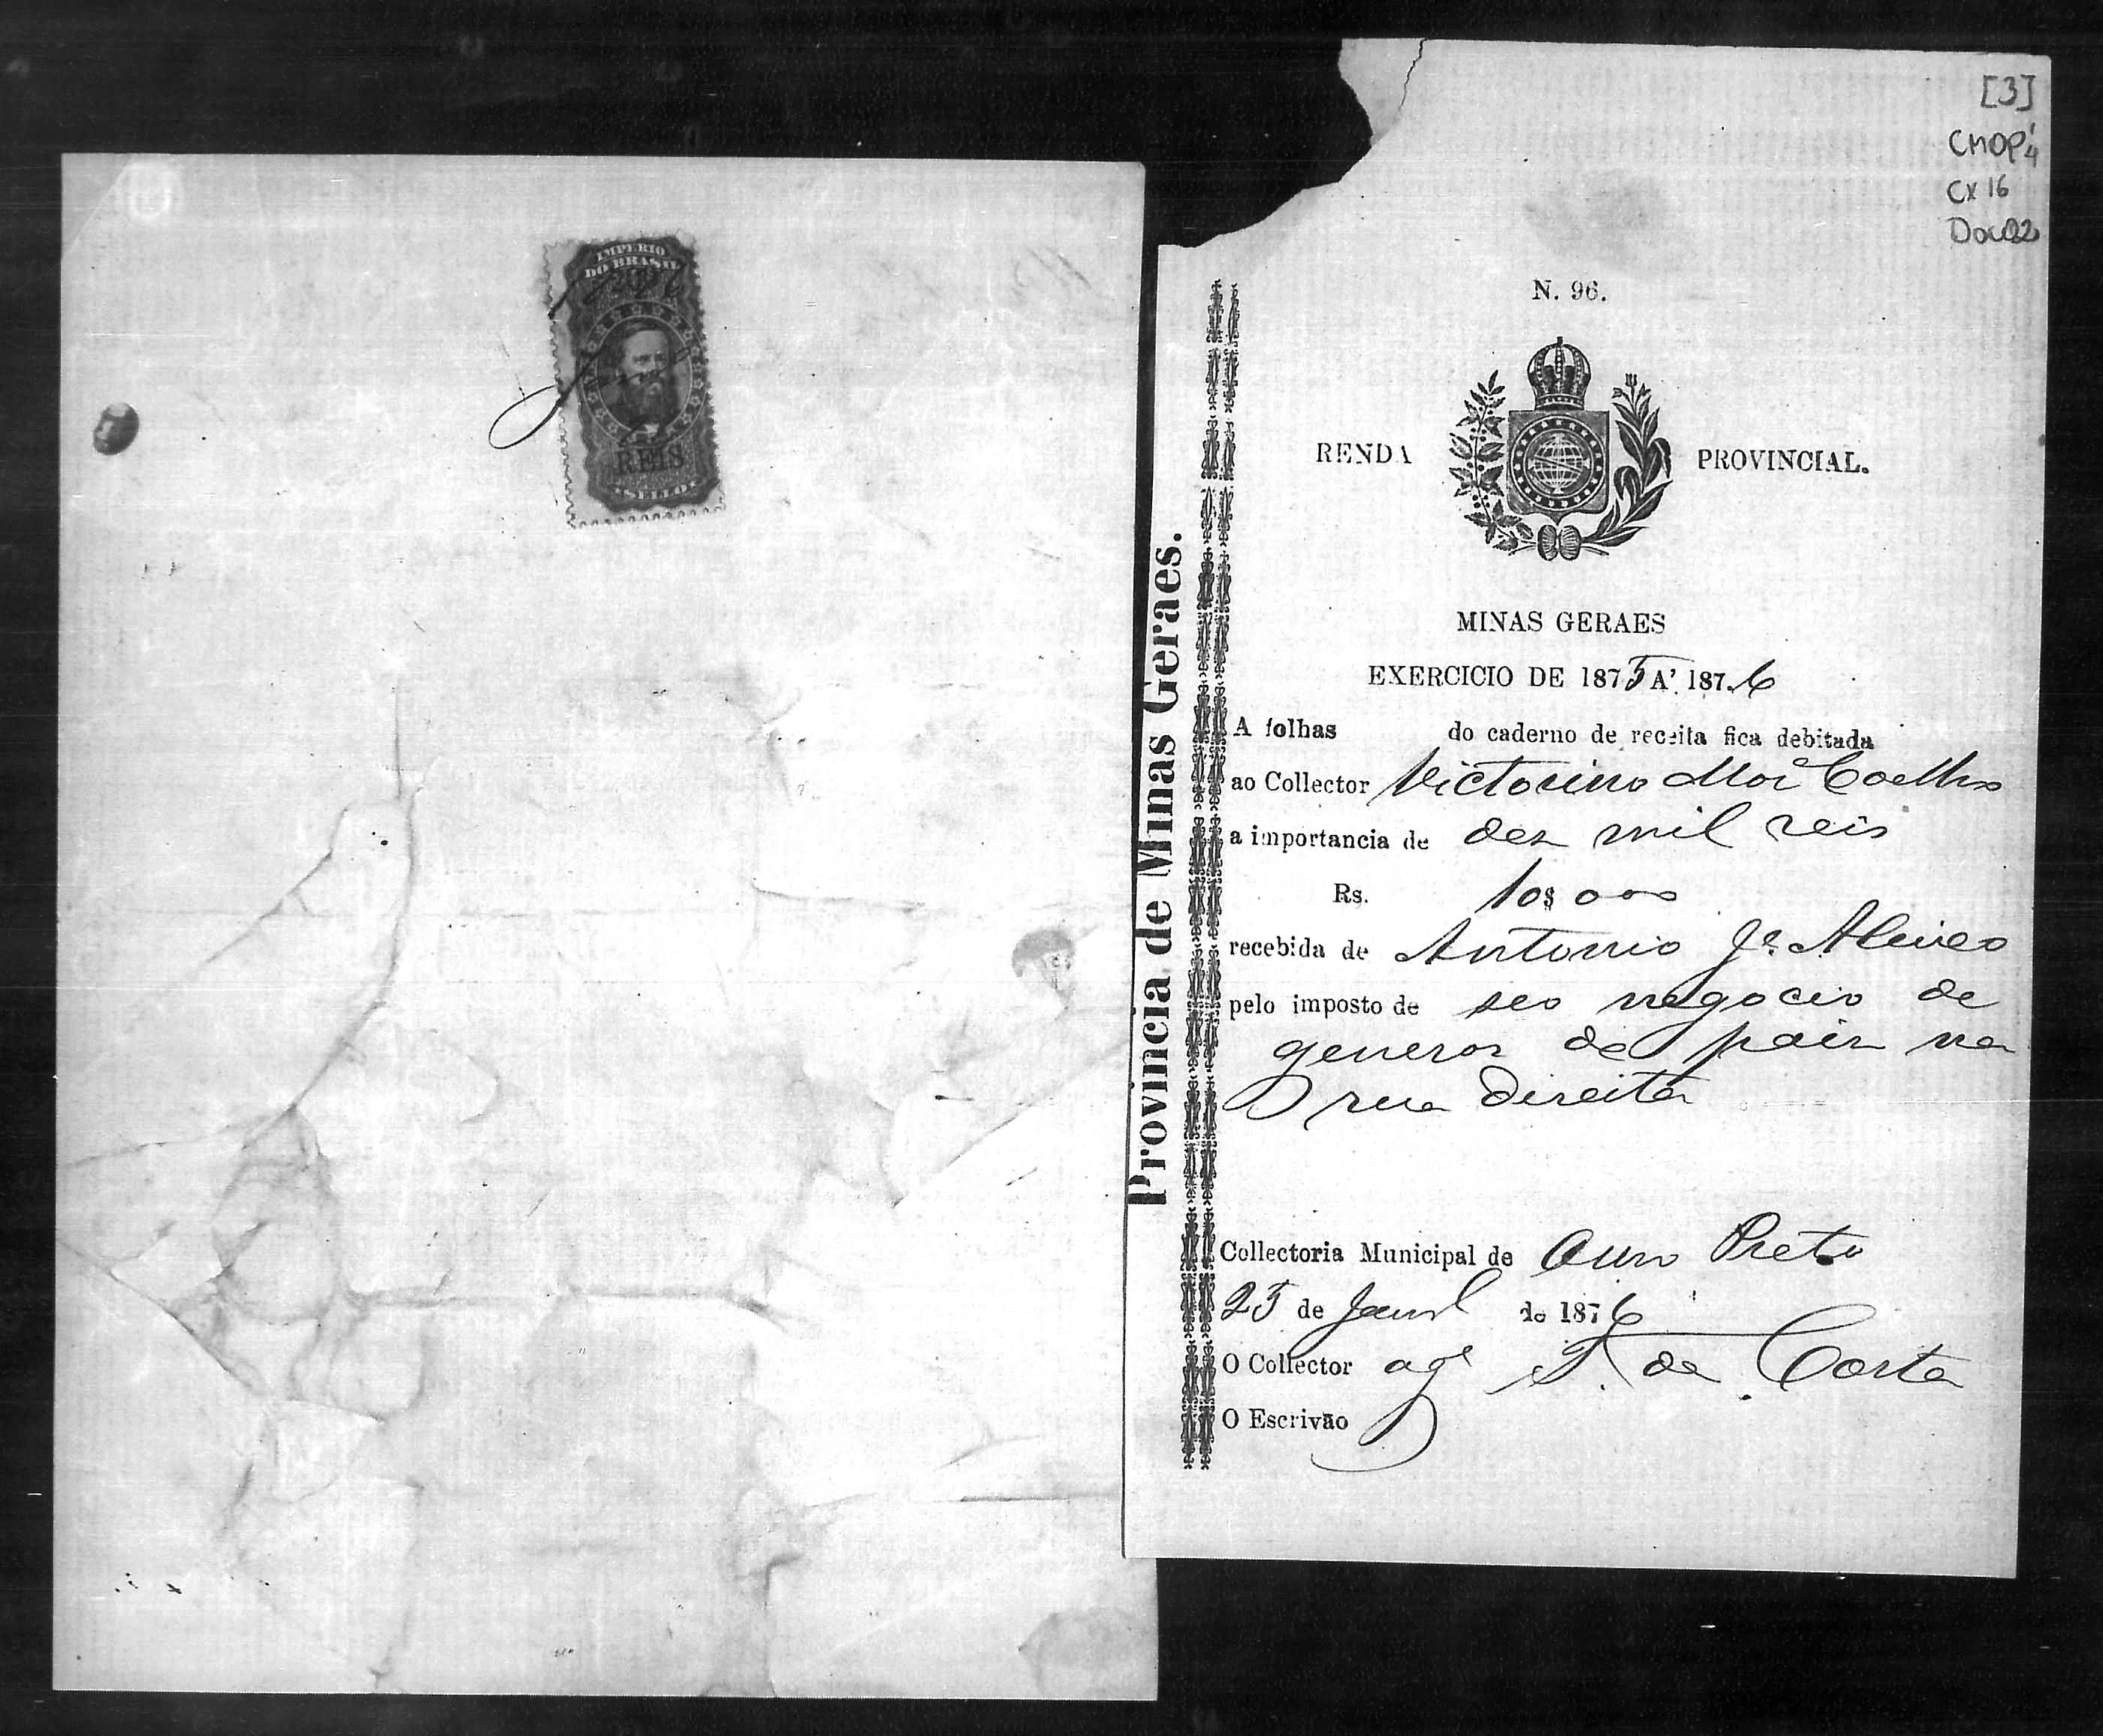 IMPERIO
DO BRASIL
REIS
SELLO
[3]
CMOP
CX 16
Doc02
N. 96.
RENDA PROVINCIAL.
Provincia de Minas Geraes.
MINAS GERAES
EXERCICIO DE 1875 A' 1876
A folhas do caderno de receita fica debitada
ao Collector Victorino Coelho
a importancia de dez mil reis
Rs. 10$000
recebida de Antonio Je. Alves
pelo imposto de seo negocio de
generos de paiz na
rua Direita
Collectoria Municipal de Ouro Preto
25 de de 1876
O Collector T. de Costa
O Escrivão